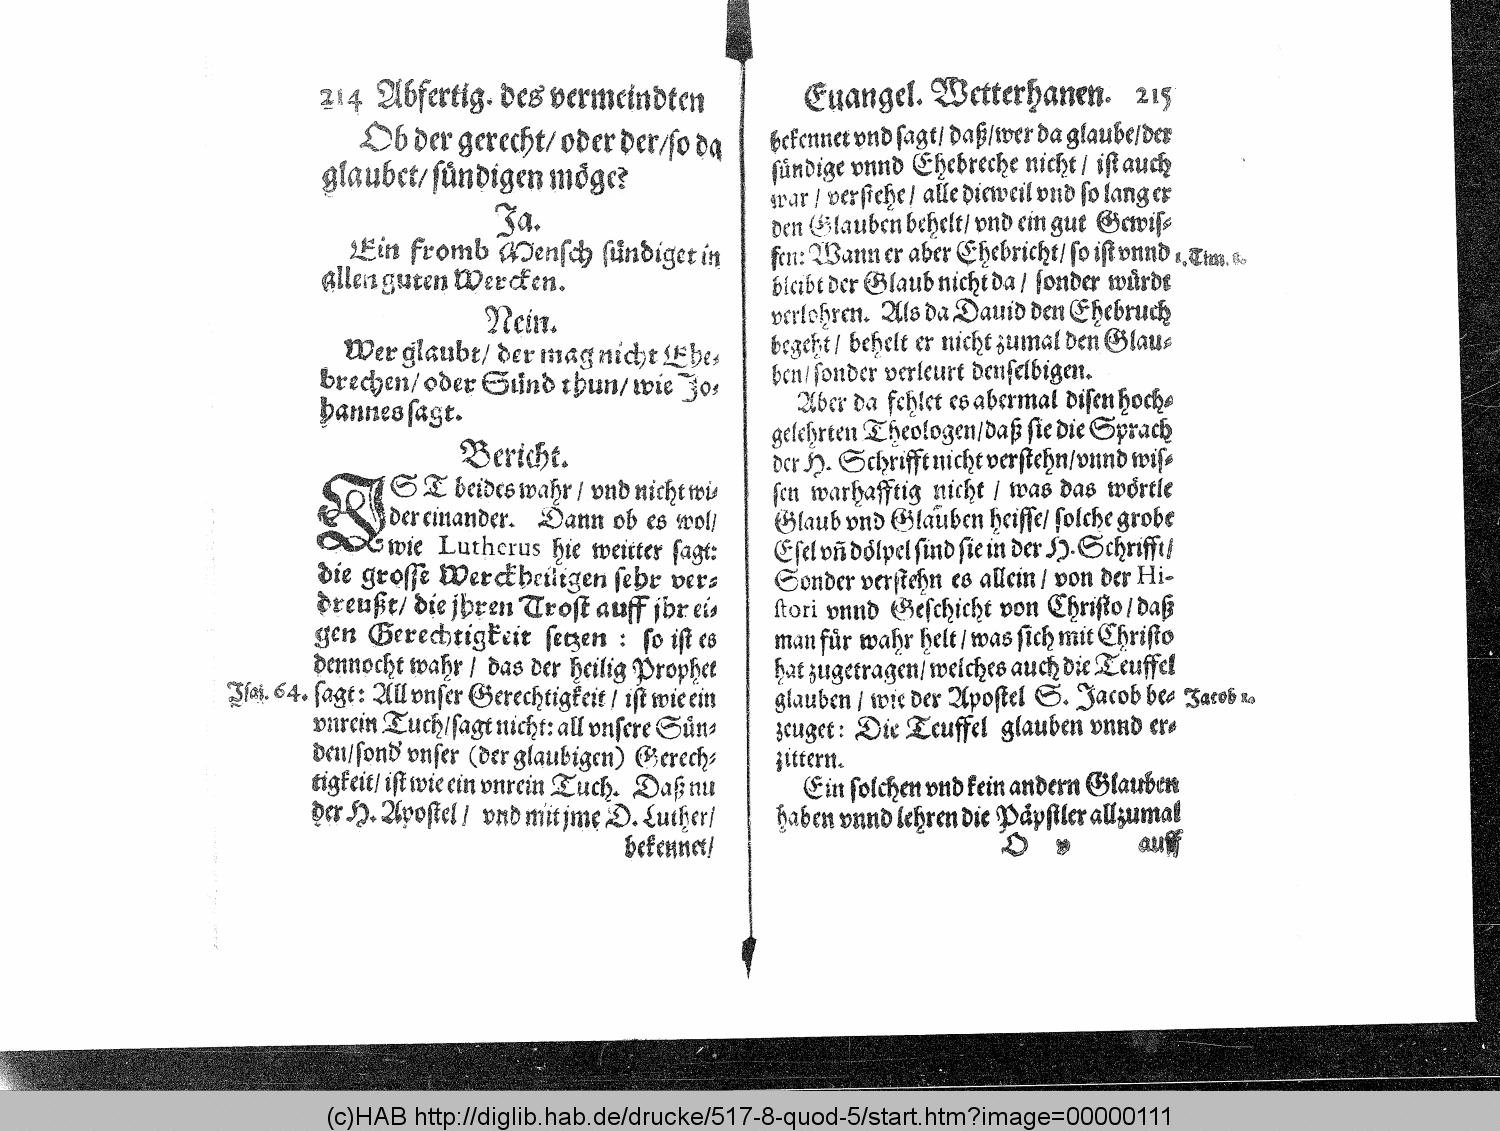 214 Abfertig. des vermeindten
Ob der gerecht/ oder der/so da
glaubet/ sündigen möge?
Ja.
Ein fromb Mensch sündiget in
allen guten Wercken.
Nein.
Wer glaubt/ der mag nicht Ehe-
brechen/ oder Sünd thun/ wie Jo-
hannes sagt.
Bericht.
IST beides wahr/ vnd nicht wi-
der einander. Dann ob es wol/
wie Lutherus hie weitter sagt:
die grosse Werckheiligen sehr ver-
dreußt/ die jhren Trost auff jhr ei-
gen Gerechtigkeit setzen : so ist es
dennocht wahr / das der heilig Prophet
Jsaj. 64. sagt: All vnser Gerechtigkeit / ist wie ein
vnrein Tuch/sagt nicht: all vnsere Sün-
den/sond' vnser (der glaubigen) Gerech-
tigkeit/ ist wie ein vnrein Tuch. Daß nu
der H. Apostel/ vnd mit jme D. Luther/
bekennet/
Euangel. Wetterhanen. 215
bekennet vnd sagt/ daß/wer da glaube/der
sündige vnnd Ehebreche nicht / ist auch
war / verstehe/ alle dieweil vnd so lang er
den Glauben behelt/ vnd ein gut Gewis-
sen: Wann er aber Ehebricht/ so ist vnnd 1. Tim.
bleibt der Glaub nicht da / sonder würdt
verlohren. Als da Dauid den Ehebruch
begeht/ behelt er nicht zumal den Glau-
ben/sonder verleurt denselbigen.
Aber da fehlet es abermal disen hoch-
gelehrten Theologen/daß sie die Sprach
der H. Schrifft nicht verstehn/vnnd wis-
sen warhafftig nicht / was das wörtle
Glaub vnd Glauben heisse/ solche grobe
Esel vñ dölpel sind sie in der H. Schrifft/
Sonder verstehn es allein / von der Hi-
stori vnnd Geschicht von Christo / daß
man für wahr helt / was sich mit Christo
hat zugetragen/ welches auch die Teuffel
glauben / wie der Apostel S. Jacob be- Jacob
zeuget: Die Teuffel glauben vnnd er-
zittern.
Ein solchen vnd kein andern Glauben
haben vnnd lehren die Päpstler allzumal
O v auff
(c)HAB http://diglib.hab.de/drucke/517-8-quod-5/start.htm?image=00000111